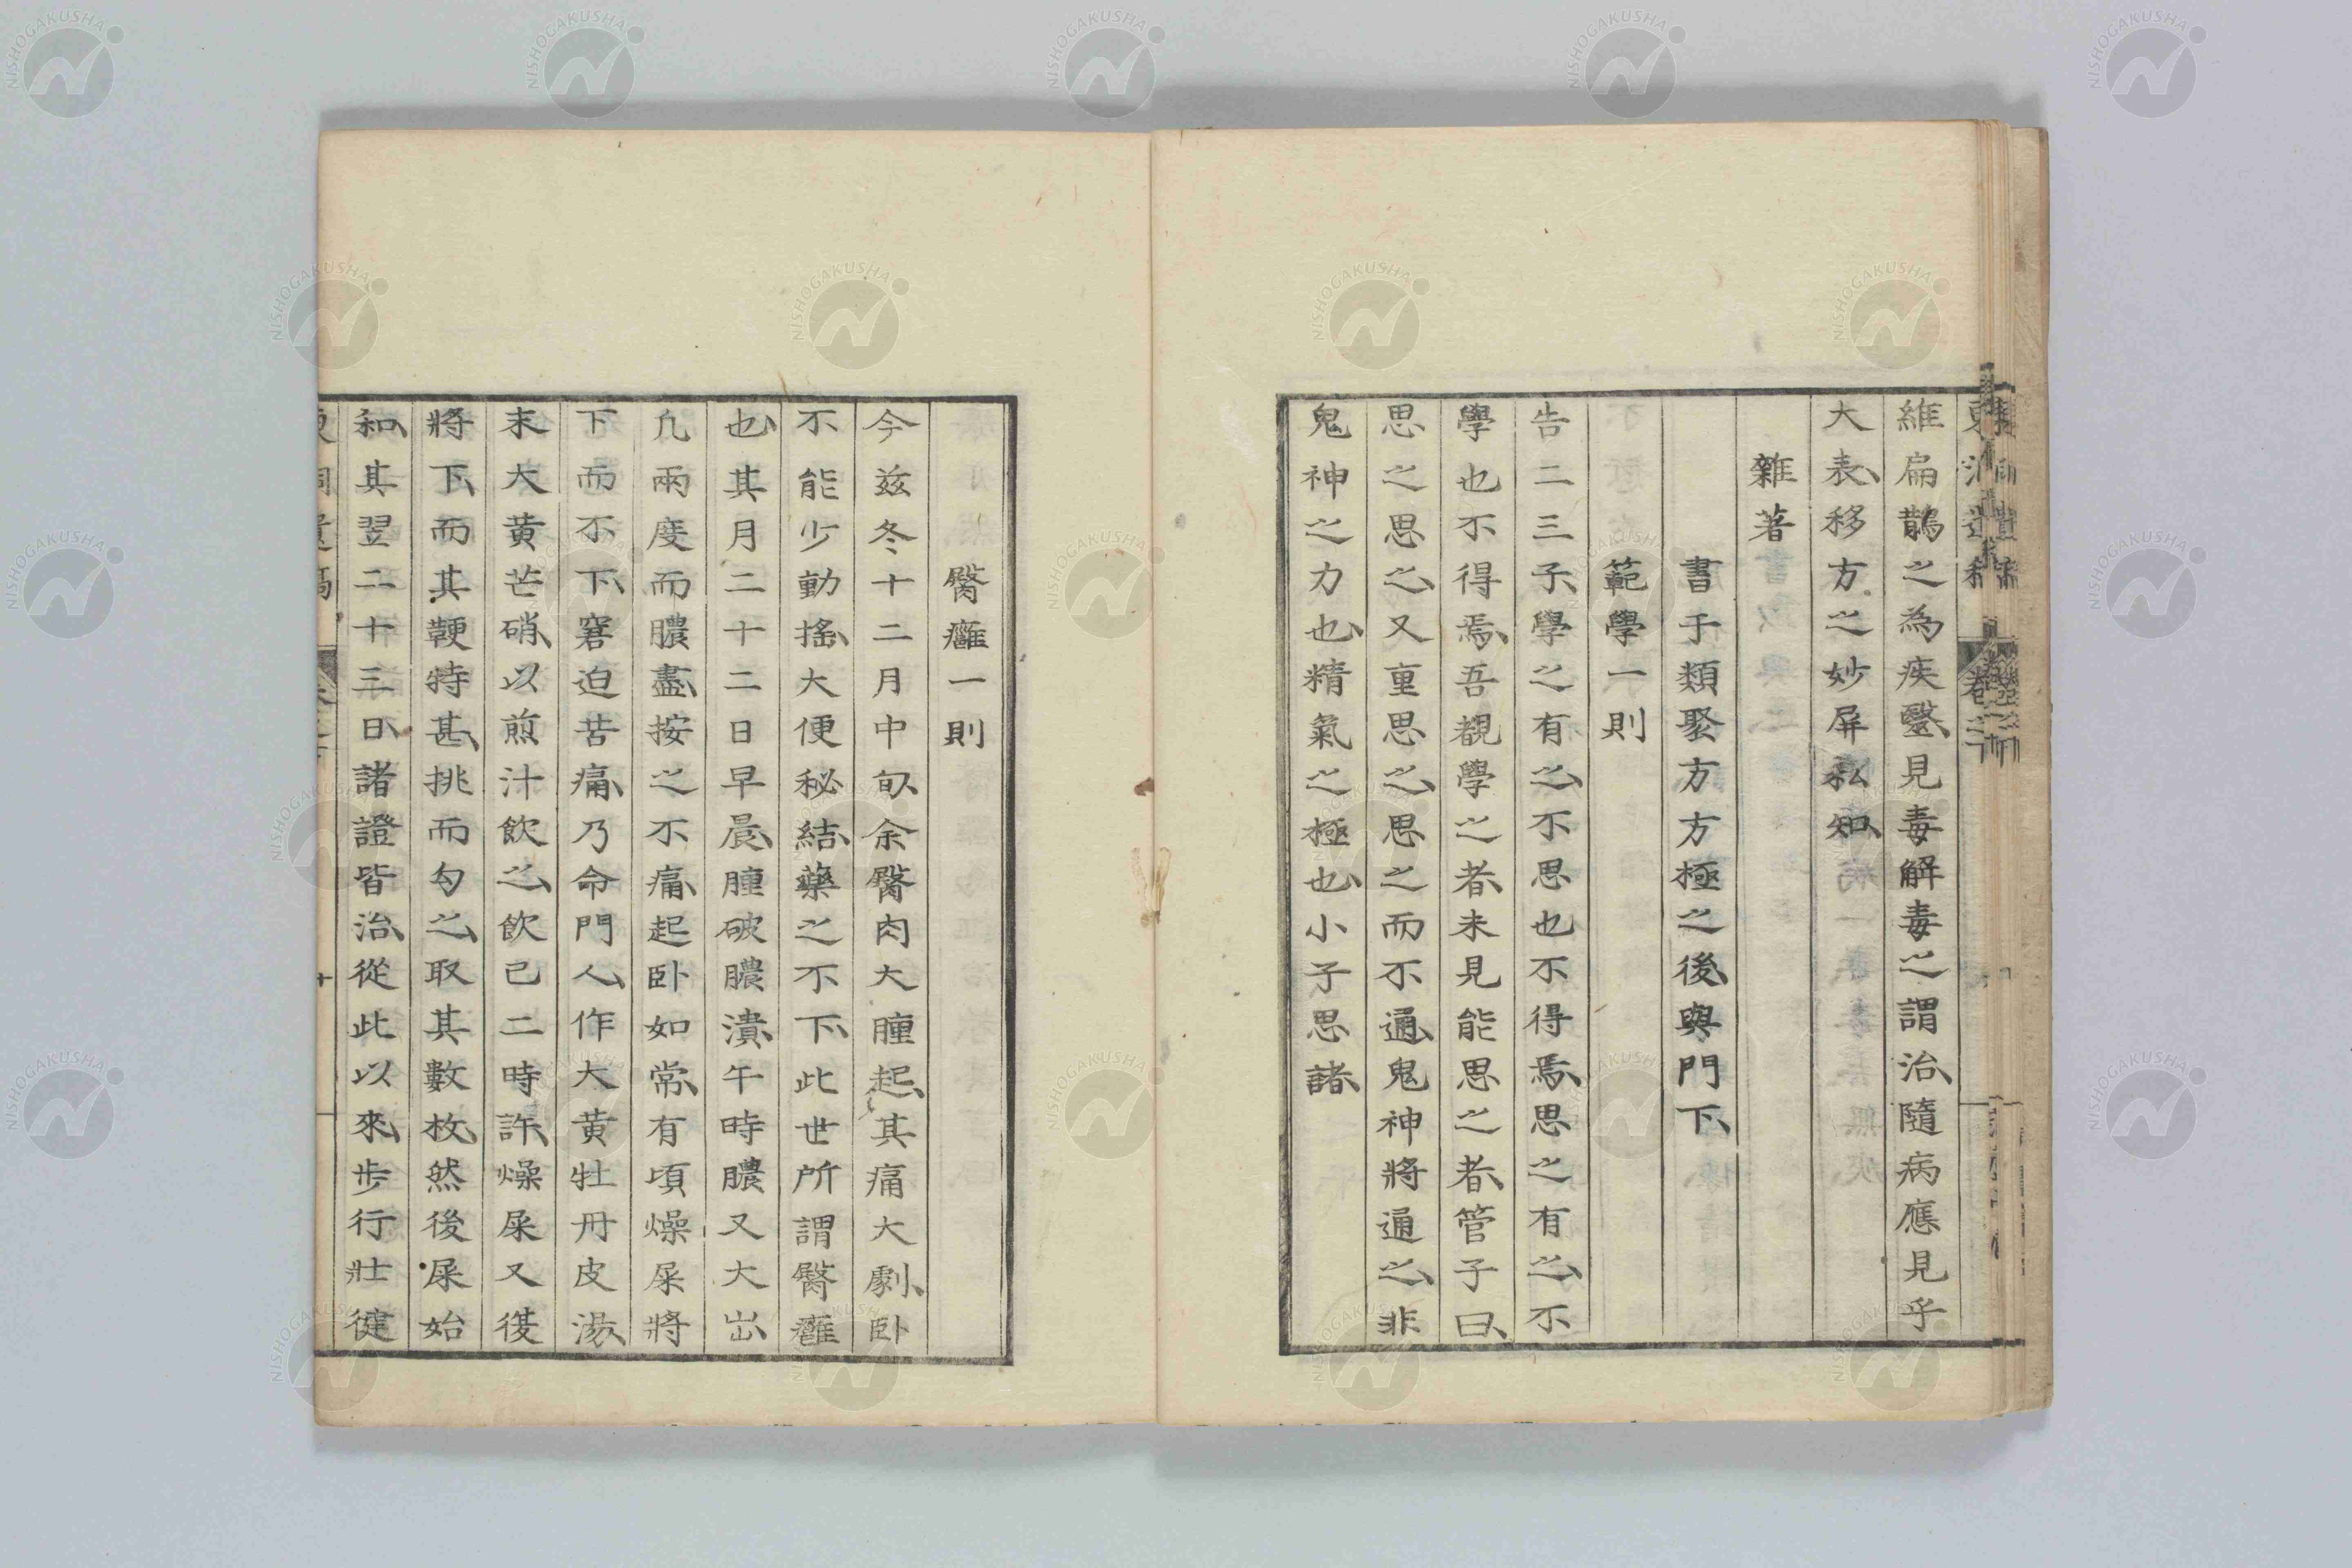 維扁鵲之為疾毉、見毒解毒之謂治、隨病應見乎
大表、移方之妙屏私知、
雜著
書于類聚方方極之後、與門下、
範學一則
告二三子、學之有之、不思也不得焉、思之有之、不
學也不得焉、吾覩學之者、未見能思之者、管子曰、
思之思之、又重思之、思之而不通、鬼神將通之、非
鬼神之力也、精氣之極也、小子思諸、
臀癰一則
今茲冬十二月中旬、余臀肉大腫起、其痛大劇、卧
不能少動搖、大便秘結、藥之不下、此世所謂臀癰
也、其月二十二日早晨、腫破膿潰、午時膿又大出、
凢兩度而膿盡、按之不痛、起卧如常、有頃燥屎將
下而不下、窘迫苦痛、乃命門人、作大黄牡丹皮湯、
末大黄芒硝、以煎汁飲之、飲已二時許、燥屎又復
將下、而其鞕特甚、挑而匀之、取其數枚、然後屎始
和、其翌二十三日、諸證皆治、從此以來、步行壯健
東洞遺稿
十
NISHOGAKUSHA